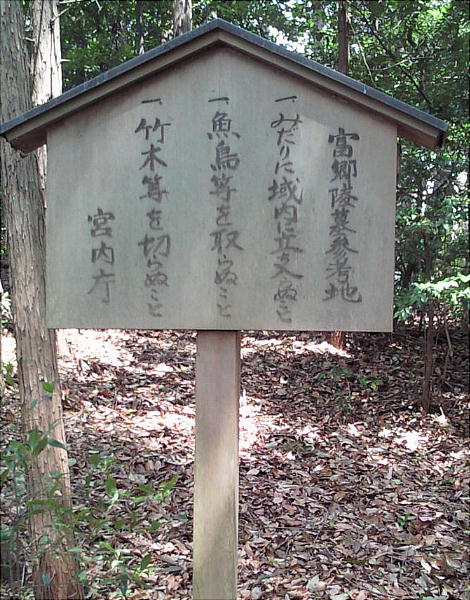 富郷陵墓參考地
一みだりに域内に立ち入らぬこと
一魚鳥等を取らぬこと
一竹木等を切らぬこと
宮内庁